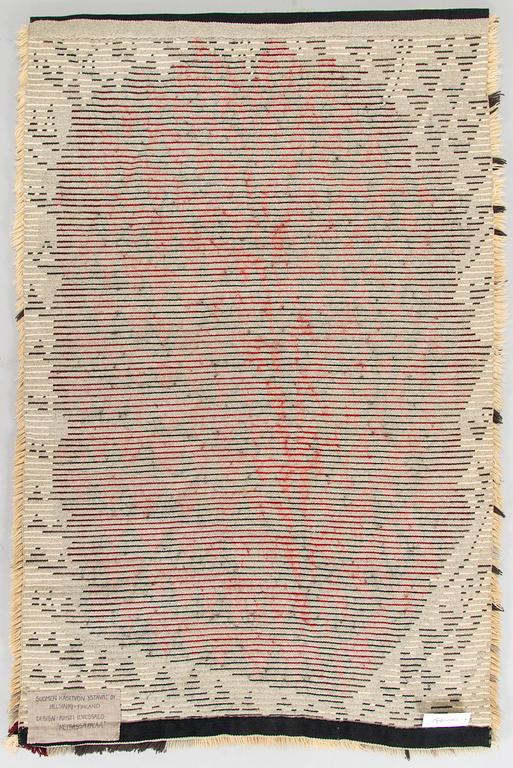 SUOMEN KÄSITYÖN YSTÄVÄT OY
HELSINKI - FINLAND
DESIGN: KIRSTI ILVESSALO
"METSÄSSÄ PALAA"